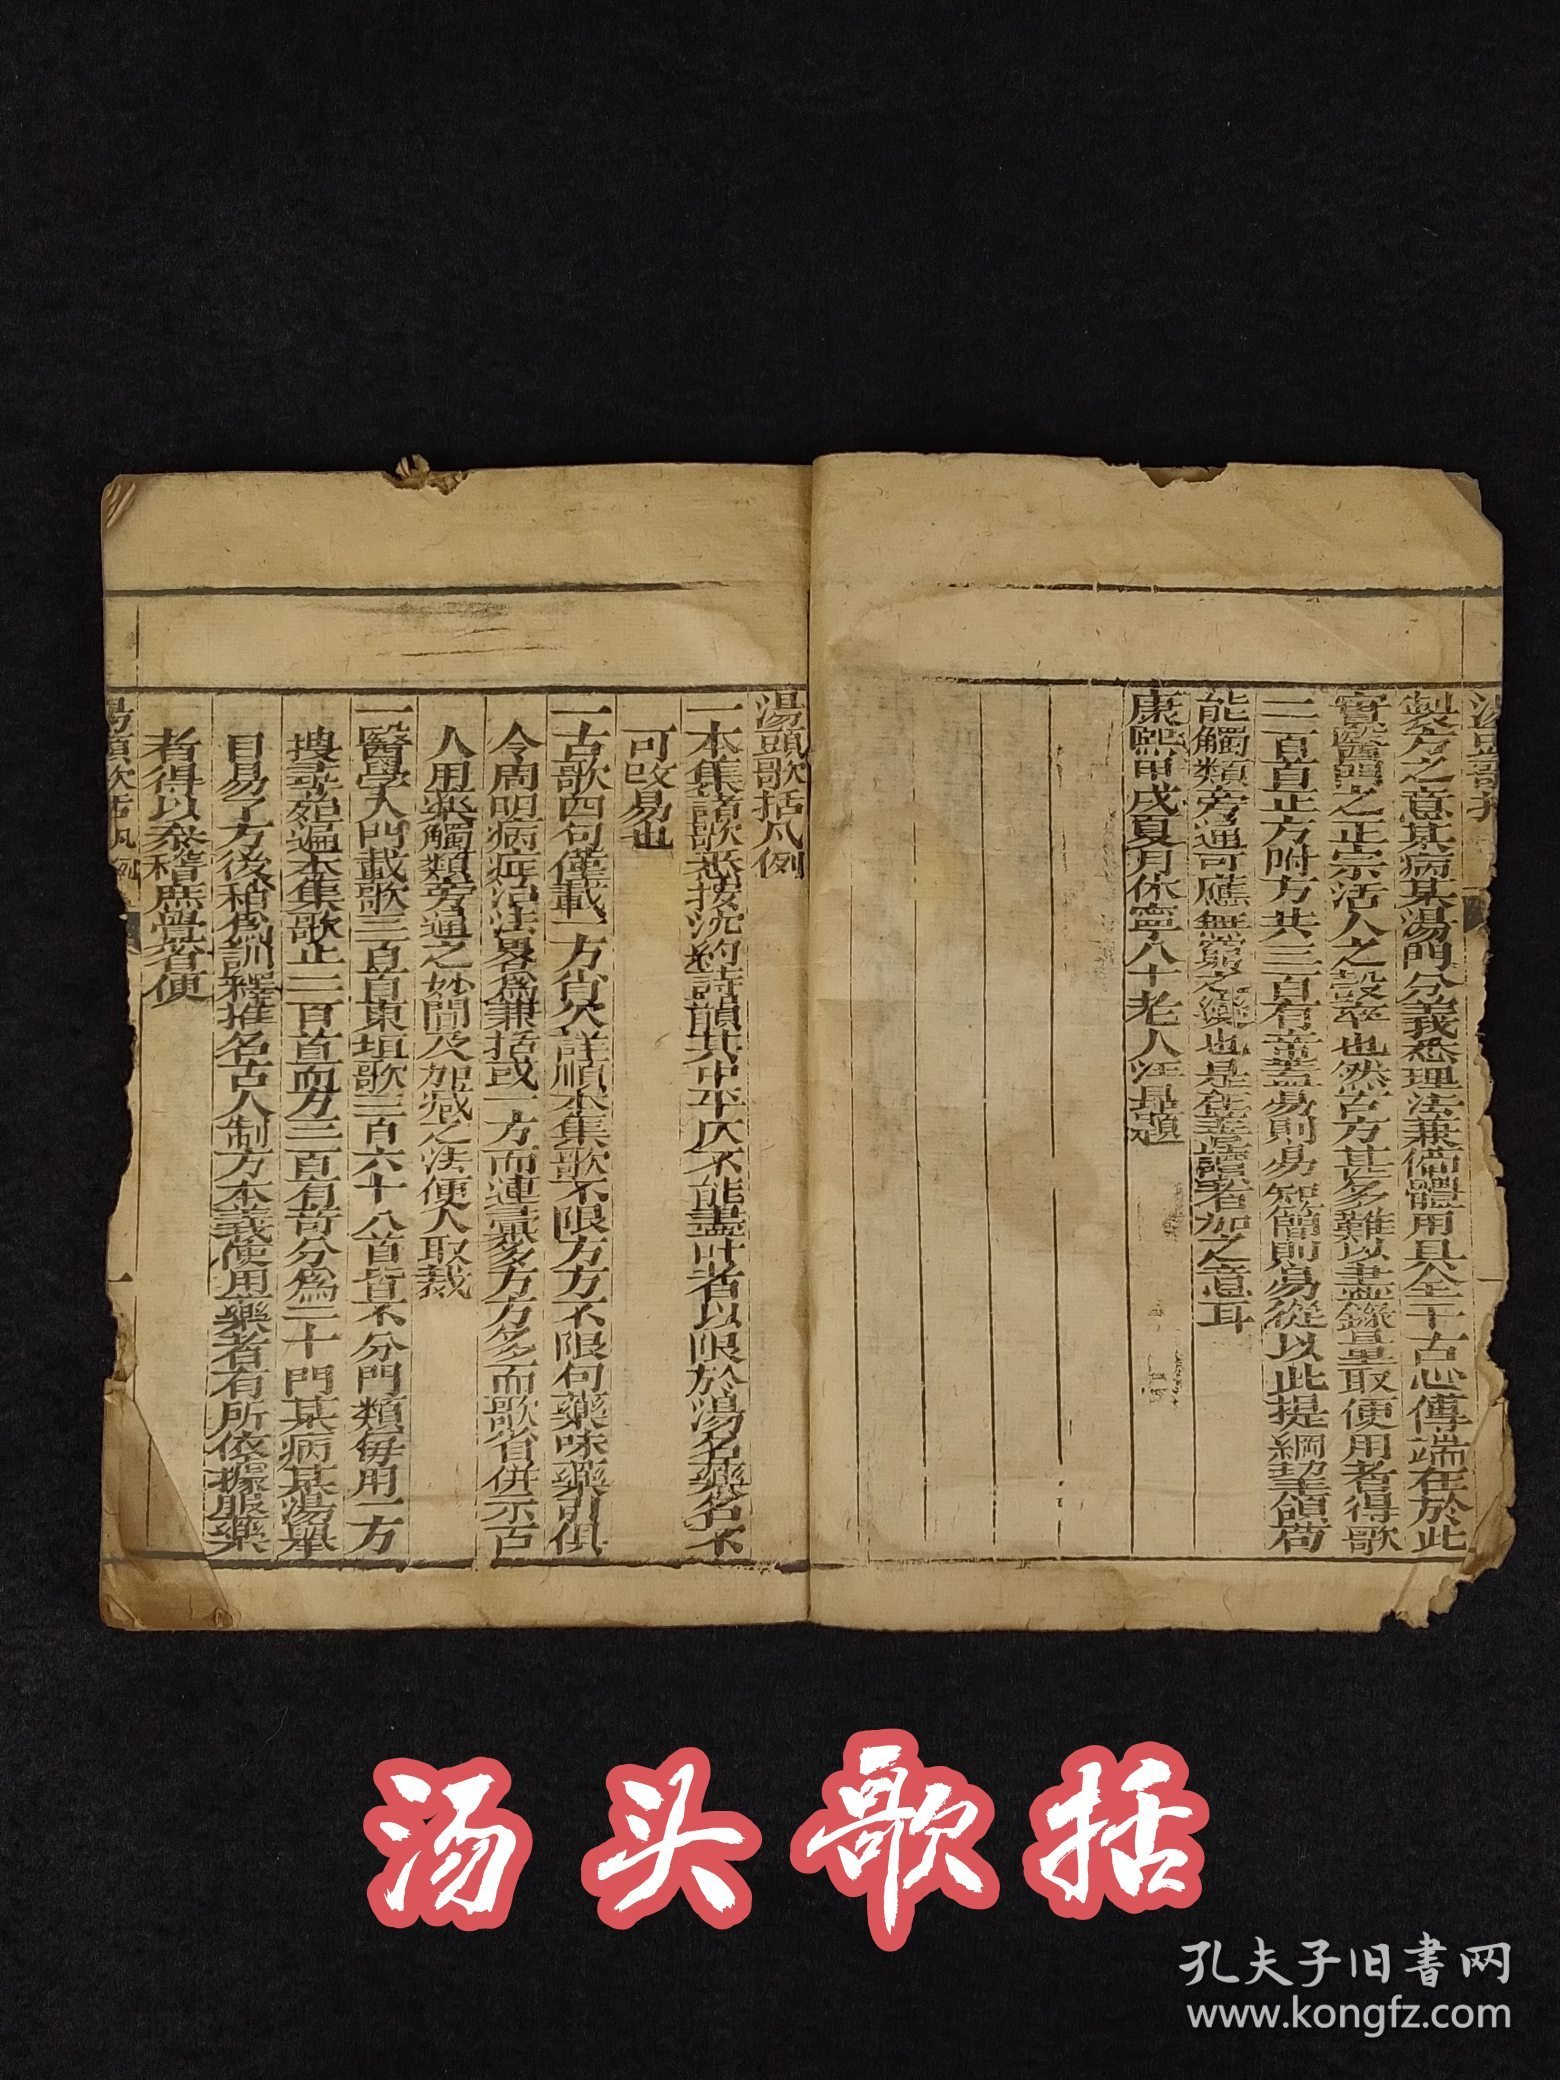 湯頭歌括
製方之意某病某湯門分義悉理法兼備體用具全千古心傳端在於此
實醫門之正宗活人之彀率也然古方甚多難以盡錄量取便用者得歌
二百首正方附方共三百有竒蓋易則易知簡則易從以此提綱挈領苟
能觸類旁通可應無窮之變也是在善讀者加之意耳
康熙甲戌夏月休寧八十老人汪昂題
湯頭歌括凡例
一本集諸歌悉按沈約詩韻其中平仄不能盡叶者以限於湯名藥名不
可改易也
一古歌四句僅載一方省欠詳順本集歌不限方方不限句藥味藥引俱
令周明病症治法畧爲兼括或一方而連彙多方方多而歌省併示古
人用藥觸類旁通之妙間及加減之法便人取裁
一醫學入門載歌三百首東垣歌三百六十八首皆不分門類每用一方
搜尋殆遍本集歌止二百首而方三百有竒分爲二十門某病某湯舉
目易了方後稍爲訓釋推名古人制方本義使用藥者有所依據服藥
者得以叅稽庶覺者便
湯頭歌括凡例
一
汤头歌括
孔夫子旧書网
www.kongfz.com